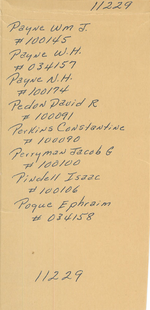 11229
Payne Wm J.
# 100145
Payne W.H.
# 034157
Payne N.H.
# 100174
Pedon David R
# 100091
Perkins Constantine
# 100090
Perryman Jacob G
# 100100
Pindell Isaac
# 100106
Pogue Ephraim
# 034158
11229